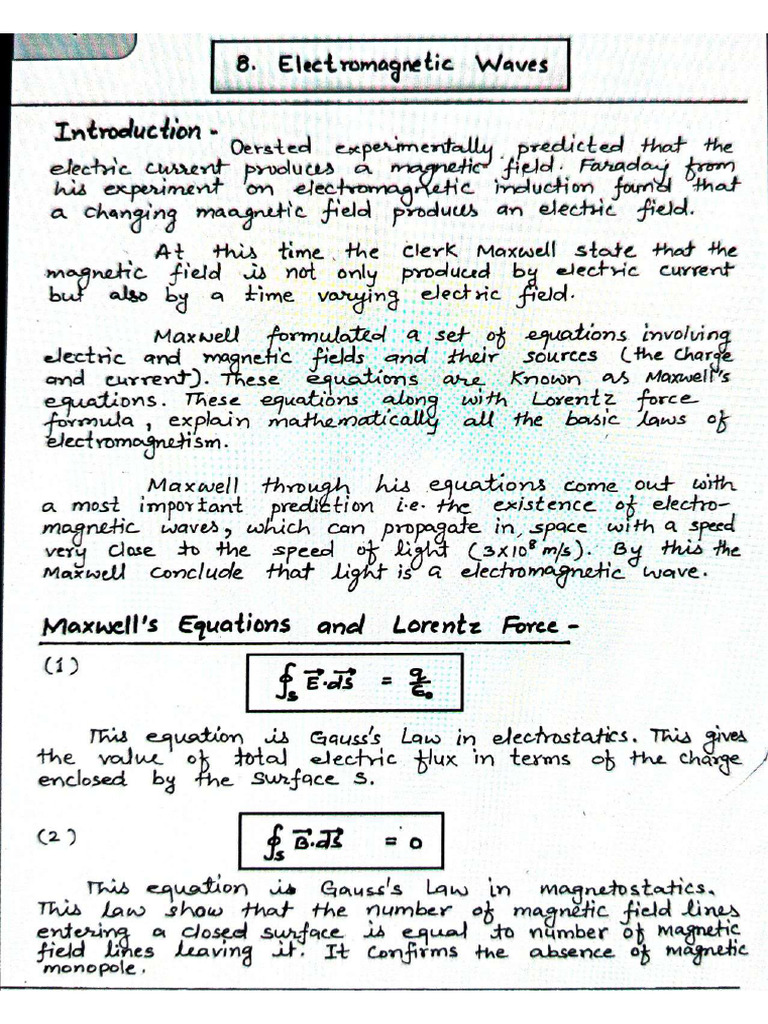 8. Electromagnetic Waves
Introduction -
Oersted experimentally predicted that the
electric current produces a magnetic field. Faraday from
his experiment on electromagnetic induction found that
a changing maagnetic field produces an electric field.
At this time the clerk Maxwell state that the
magnetic field is not only produced by electric current
but also by a time varying electric field.
Maxwell formulated a set of equations involving
electric and magnetic fields and their sources (the charge
and current). These equations are known as Maxwell's
equations. These equations along with Lorentz force
formula, explain mathematically all the basic laws of
electromagnetism.
Maxwell through his equations come out with
a most important prediction i.e. the existence of electro-
magnetic waves, which can propagate in space with a speed
very close to the speed of light (3×10⁸ m/s). By this the
Maxwell conclude that light is a electromagnetic wave.
Maxwell's Equations and Lorentz Force -
(1) ∮ₛ E⃗.dS⃗ = q/ε₀
This equation is Gauss's Law in electrostatics. This gives
the value of total electric flux in terms of the charge
enclosed by the surface S.
(2) ∮ₛ B⃗.dS⃗ = 0
This equation is Gauss's Law in magnetostatics.
This law show that the number of magnetic field lines
entering a closed surface is equal to number of magnetic
field lines leaving it. It confirms the absence of magnetic
monopole.